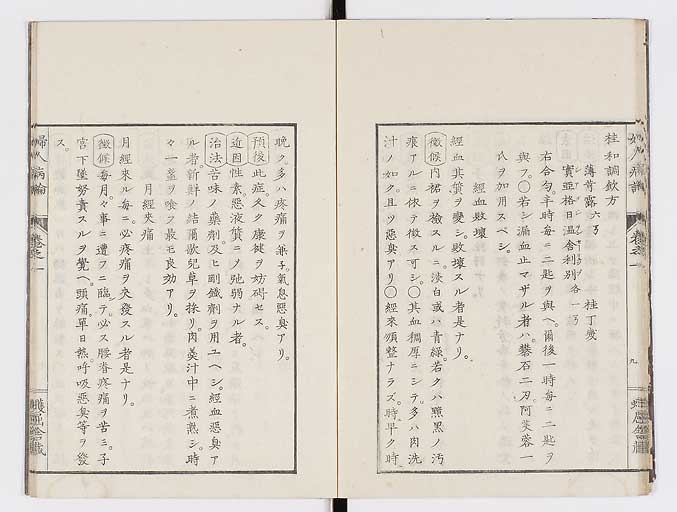 桂和調飲方
薄荷露六々 桂丁幾
實亞格日溫舎利別各一々
右合匀。半時每ニ二匙ヲ與ヘ。爾後一時每ニ二匙ヲ
與フ。○若シ漏血止マザル者ハ。礬石二刃阿芙蓉一
氏ヲ加用スベシ。
經血敗壞
經血其質ヲ變シ。敗壞スル者是ナリ。
徵候內裙ヲ檢スルニ。淡白或ハ青綠。若クハ黯黑ノ汚
痕アルニ依テ徵ス可シ。○其血稠厚ニシテ。多ハ肉洗
汁ノ如ク。且ツ惡臭アリ○經來順整ナラズ。時早ク時
晚ク。多ハ疼痛ヲ兼子。氣息惡臭アリ。
預後此症久ク康健ヲ妨碍セス
近因性素惡液質ニノ虵弱ナル者。
治法苦味ノ藥劑及ヒ剛鐵劑ヲ用ユヘシ。經血惡臭ア
ル者新鮮ノ結爾歇兒草ヲ採リ。肉羹汁中ニ煮熟シ。時
々一盞ヲ喰フ最モ良効アリ。
月經夾痛
月經來ル每ニ。必疼痛ヲ夾發スル者是ナリ。
徵候每月。々事ニ遭フニ臨テ。必ス腰脊疼痛ヲ苦ミ。子
宮下墜努責スルヲ覺ヘ。頭痛。單日熱。呼吸惡臭等ヲ發
ス。
婦人病論
卷之一
九